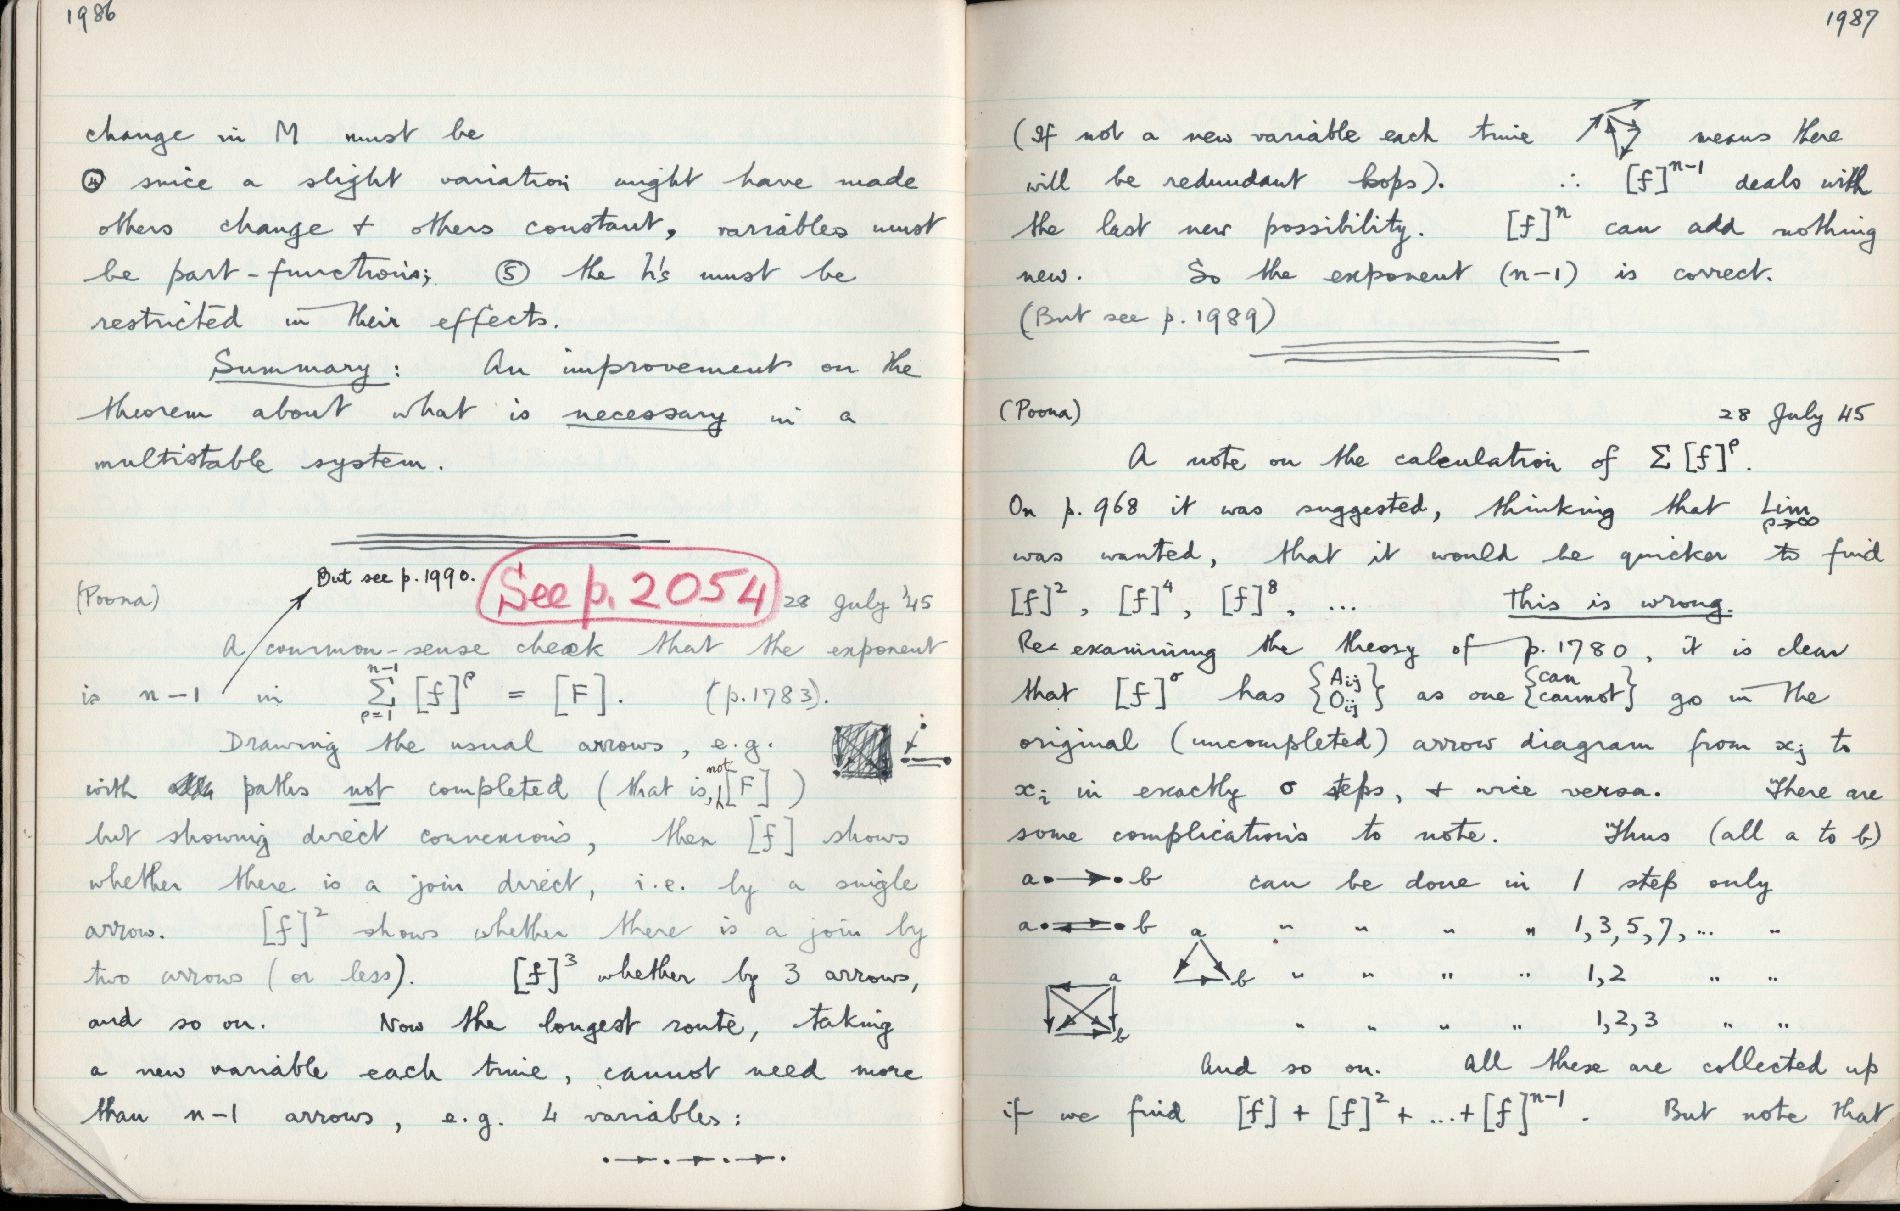 1986
change in M must be
④ since a slight variation might have made
others change + others constant, variables must
be part-functions; ⑤ the h's must be
restricted in their effects.
Summary: An improvement on the
theorem about what is necessary in a
multistable system.
But see p. 1990.
See p. 2054
(Poona) 28 July '45
A common-sense check that the exponent
is n-1 in \sum_{ρ=1}^{n-1} [f]^ρ = [F]. (p.1783).
Drawing the usual arrows, e.g.
with paths not completed (that is, not [F])
but showing direct connexions, then [f] shows
whether there is a join direct, i.e. by a single
arrow. [f]² shows whether there is a join by
two arrows (or less). [f]³ whether by 3 arrows,
and so on. Now the longest route, taking
a new variable each time, cannot need more
than n-1 arrows, e.g. 4 variables:
1987
(If not a new variable each time means there
will be redundant hops). ∴ [f]^{n-1} deals with
the last new possibility. [f]^n can add nothing
new. So the exponent (n-1) is correct.
(But see p. 1989)
(Poona) 28 July 45
A note on the calculation of Σ[f]^ρ.
On p. 968 it was suggested, thinking that Lim ρ→∞
was wanted, that it would be quicker to find
[f]², [f]⁴, [f]⁸, ... This is wrong.
Re-examining the theory of p. 1780, it is clear
that [f]^σ has {A_{ij} O_{ij}} as one {can cannot} go in the
original (uncompleted) arrow diagram from x_j to
x_i in exactly σ steps, + vice versa. There are
some complications to note. Thus (all a to b)
a b can be done in 1 step only
a b " " " " 1,3,5,7,... "
a b " " " " 1,2 " "
a b " " " " 1,2,3 " "
And so on. All these are collected up
if we find [f] + [f]² + ... + [f]^{n-1}. But note that